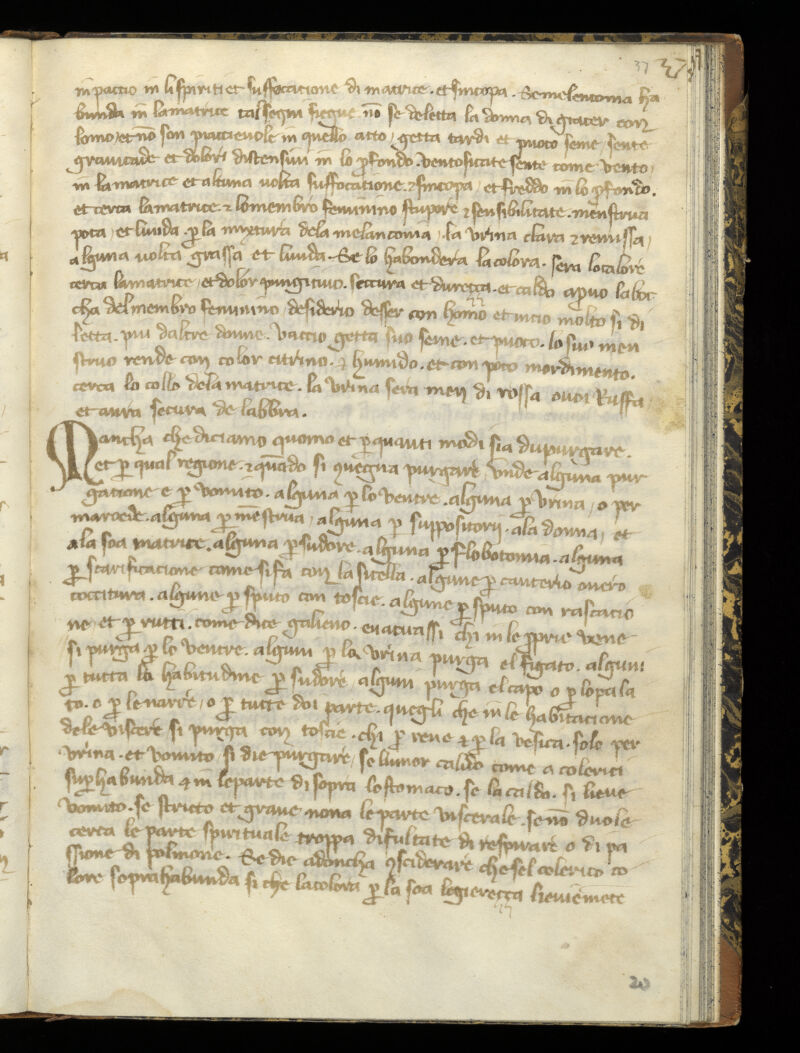 37 37
inpaccio in li spiriti et suffocatione di matrice. et sincopa. Se melenconia ha
bunda in la matrice tal segni siegue nō se deletta la donna di giacer con
lomo, et nō son piacievole in quello atto, getta tardi et puoco seme, sente
gravitade et dolori distensivi in lo ꝓfondo. ventositate sente come vento,
in la matrice et alcuna volta suffocatione. ⁊ sincopa, et freddo in lo ꝓfondo.
et cerca la matrice. ⁊ lo membro feminino stupore ⁊ sensibilitate. menstrua
poca, et livida. ꝑ la mixtura dela melanconia, la vrina clara ⁊ remissa,
alguna volta grassa et livida. Se lo habondera la colora. sera lo calore
cerca la matrice, et dolor pungitivo. seccura et durecça. et caldo apruo la boc
cha del membro feminino, desiderio desser con homo et in cio molto si di
letta. piu daltre donne. Vaccio getta suo seme. et puoco. lo suo men
struo rende con color citrino. ⁊ humido. et con poco mordimento.
cerca lo collo dela matrice. la vrina sera men di rossa ovoi Ruffa
et avra seccura de labbra.
Mancha che diciamo quomo et ꝑ quanti modi sia dupurgare.
et ꝑ qual regione. ⁊ quādo si quegna purgare, vnde alguna pur
gatione e ꝑ vomito. alguna ꝑ lo ventre. alguna ꝑ vrina, o per
maroide. alguna ꝑ mēstrua, alguna ꝑ suppositorij. ala donna, et
ala soa matrice. alguna ꝑ sudore. alguna ꝑ flobotomia. alguna
ꝑ scarificatione come si fa con la sicella. algune ꝑ cauterio overo
coccitura. algune ꝑ sputo con toscie. algune ꝑ sputo con rascacio
ne, et ꝑ rutti. come dice galieno. evacuassi chi in le ꝓprie vene
si purga ꝑ lo ventre. alguni ꝑ la vrina purga el figato. alguni
ꝑ tutta la habitudine ꝑ sudore, alguni purga el capo o ꝑ lo pala
to. o ꝑ le narre, o ꝑ tutte doi parte. quegli che in le habitacione
dele viscere si purga con toscie. chi ꝑ rene ⁊ ꝑ la vesica. solo per
vrina. et vomito, si die purgare, se lumor caldo come a colerici
suꝑhabunda ⁊ in le parte di sopra lo stomaco. se la caldo. si lieve
vomito. se stricto et grave nona le parte viscerale. se nō duole
cerca le parte spirituale troppa difultate di respirare o di pa
ssione di polmone. Se die adoncha ꝯsiderare che sel colerico co
lore soprahabunda si che la colora ꝑ la soa legierecça lievemēte
20